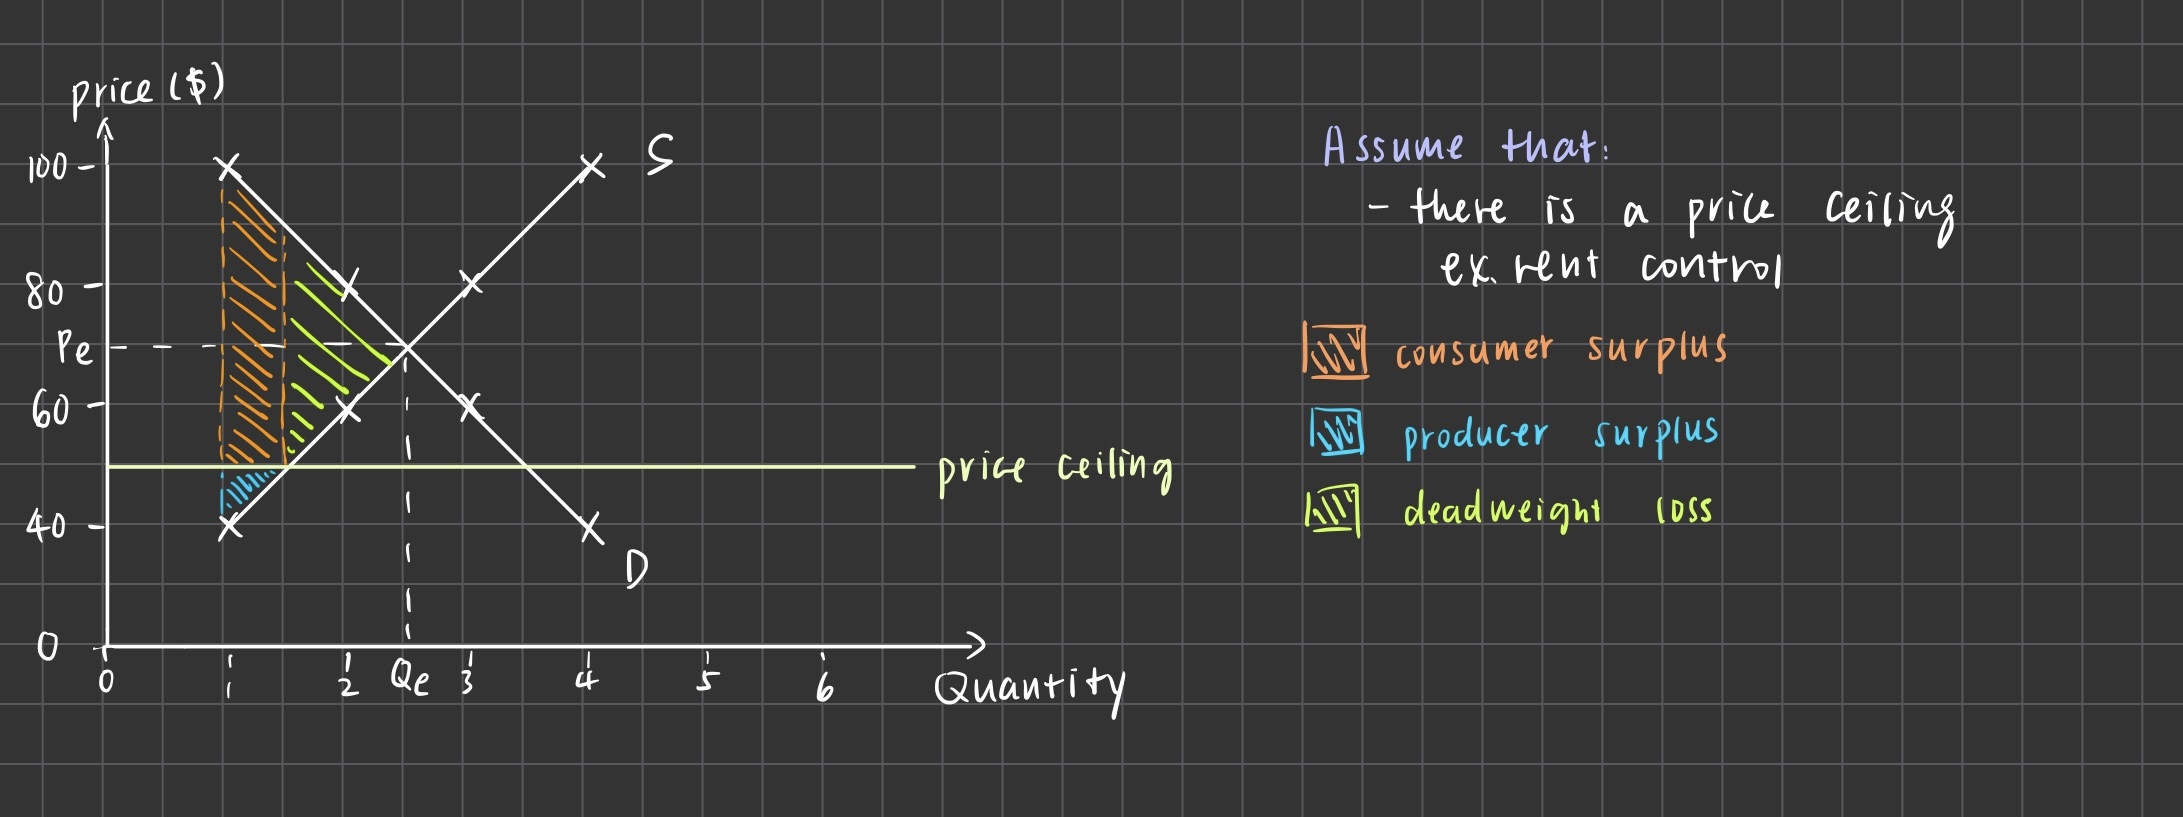 price ($)
100
S
80
Pe
60
price ceiling
40
D
0
0
1
2
Qe
3
4
5
6
Quantity
Assume that:
- there is a price ceiling
ex. rent control
consumer surplus
producer surplus
deadweight loss